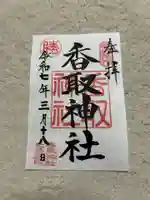 奉拝
香取神社
令和七年三月十八日
勝